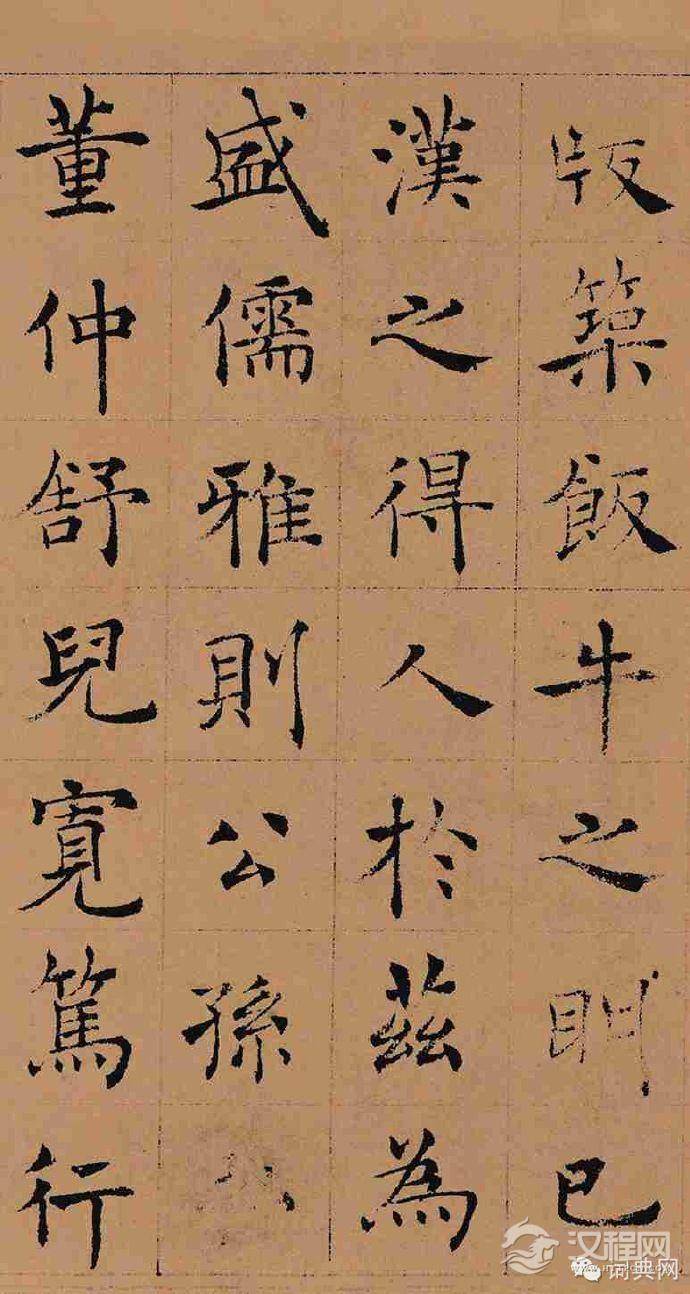 版築飯牛之眀已
漢之得人於茲為
盛儒雅則公孫
董仲舒兒寬篤行
汉程网
词典网